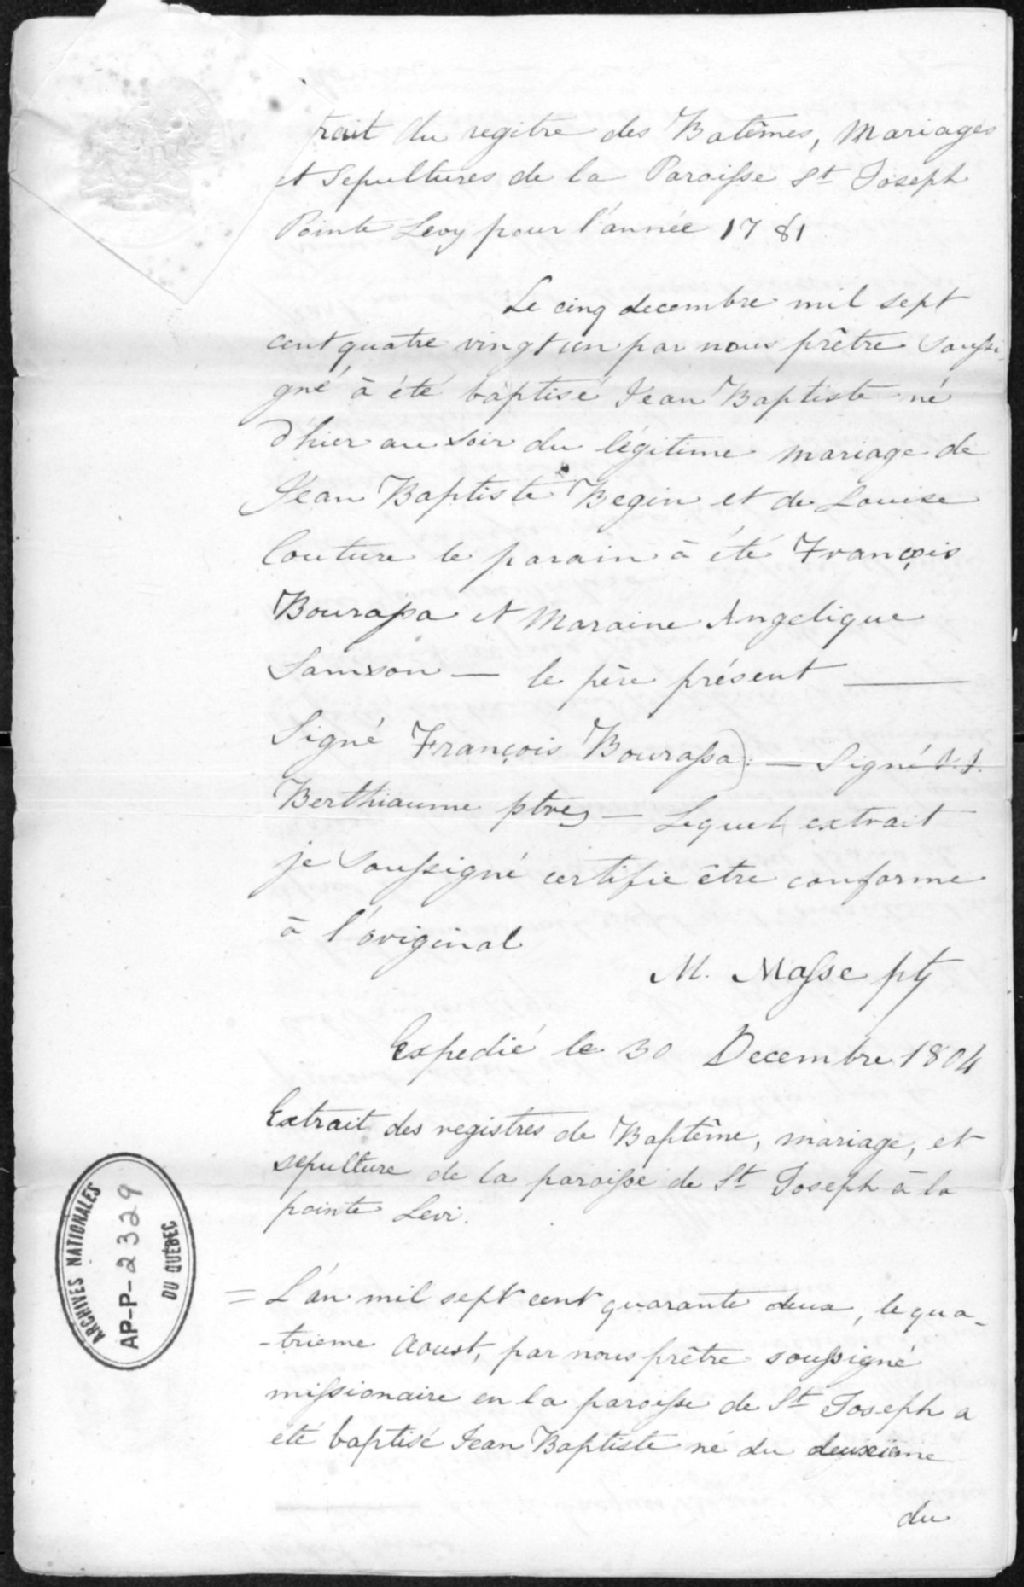 trait du regitre des Batêmes, Mariages
et Sepultures de la Paroisse St Joseph
Pointe Levy pour l'année 1781
Le cinq decembre mil sept
cent quatre vingt un par nous prêtre soussi-
gné à été baptisé Jean Baptiste né
d'hier au soir du légitime mariage de
Jean Baptiste Begin et de Louise
Couture le parain à été François
Bourassa et Maraine Angelique
Samson — le père présent —
Signé François Bourassa) — Signé
Berthiaume ptre — Lequel extrait
je soussigné certifie être conforme
à l'original
M. Masse ptr
Expedié le 30 Decembre 1804
Extrait des registres de Baptême, mariage, et
sepulture de la paroisse de St Joseph à la
pointe Levi.
= L'an mil sept cent quarante deux, le qua-
-trieme Aoust, par nous prêtre soussigné
missionaire en la paroisse de St Joseph a
eté baptisé Jean Baptiste né du deuxieme
du
ARCHIVES NATIONALES
AP-P-2329
DU QUÉBEC